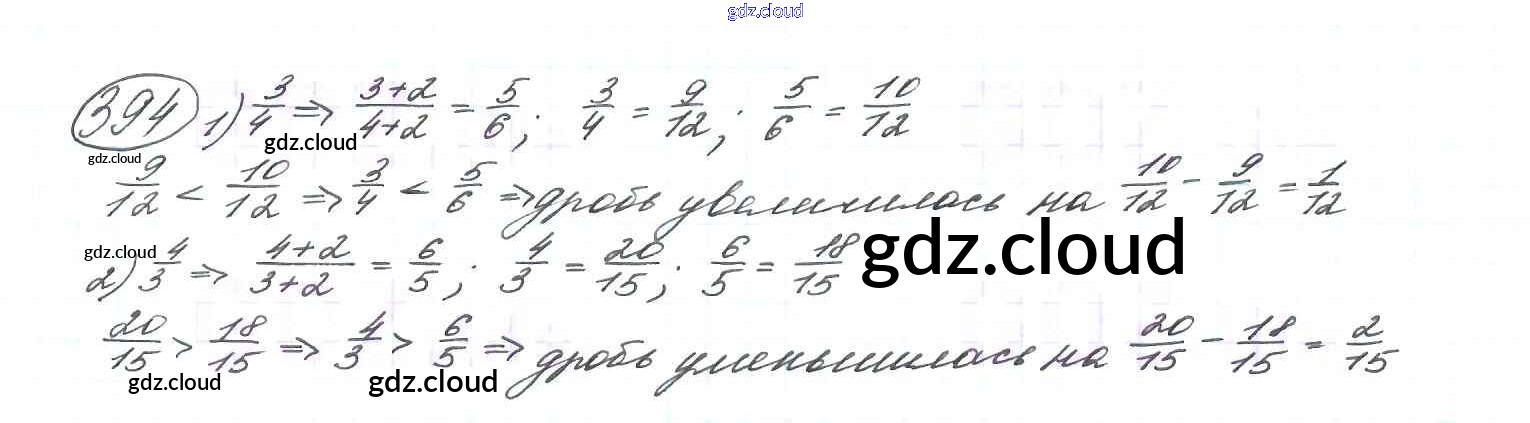 gdz.cloud
394 1) 3/4 ⇒ (3+2)/(4+2) = 5/6; 3/4 = 9/12; 5/6 = 10/12
gdz.cloud
gdz.cloud
9/12 < 10/12 ⇒ 3/4 < 5/6 ⇒ дробь увеличилась на 10/12 - 9/12 = 1/12
gdz.cloud
gdz.cloud
2) 4/3 ⇒ (4+2)/(3+2) = 6/5; 4/3 = 20/15; 6/5 = 18/15
20/15 > 18/15 ⇒ 4/3 > 6/5 ⇒ дробь уменьшилась на 20/15 - 18/15 = 2/15
gdz.cloud
gdz.cloud